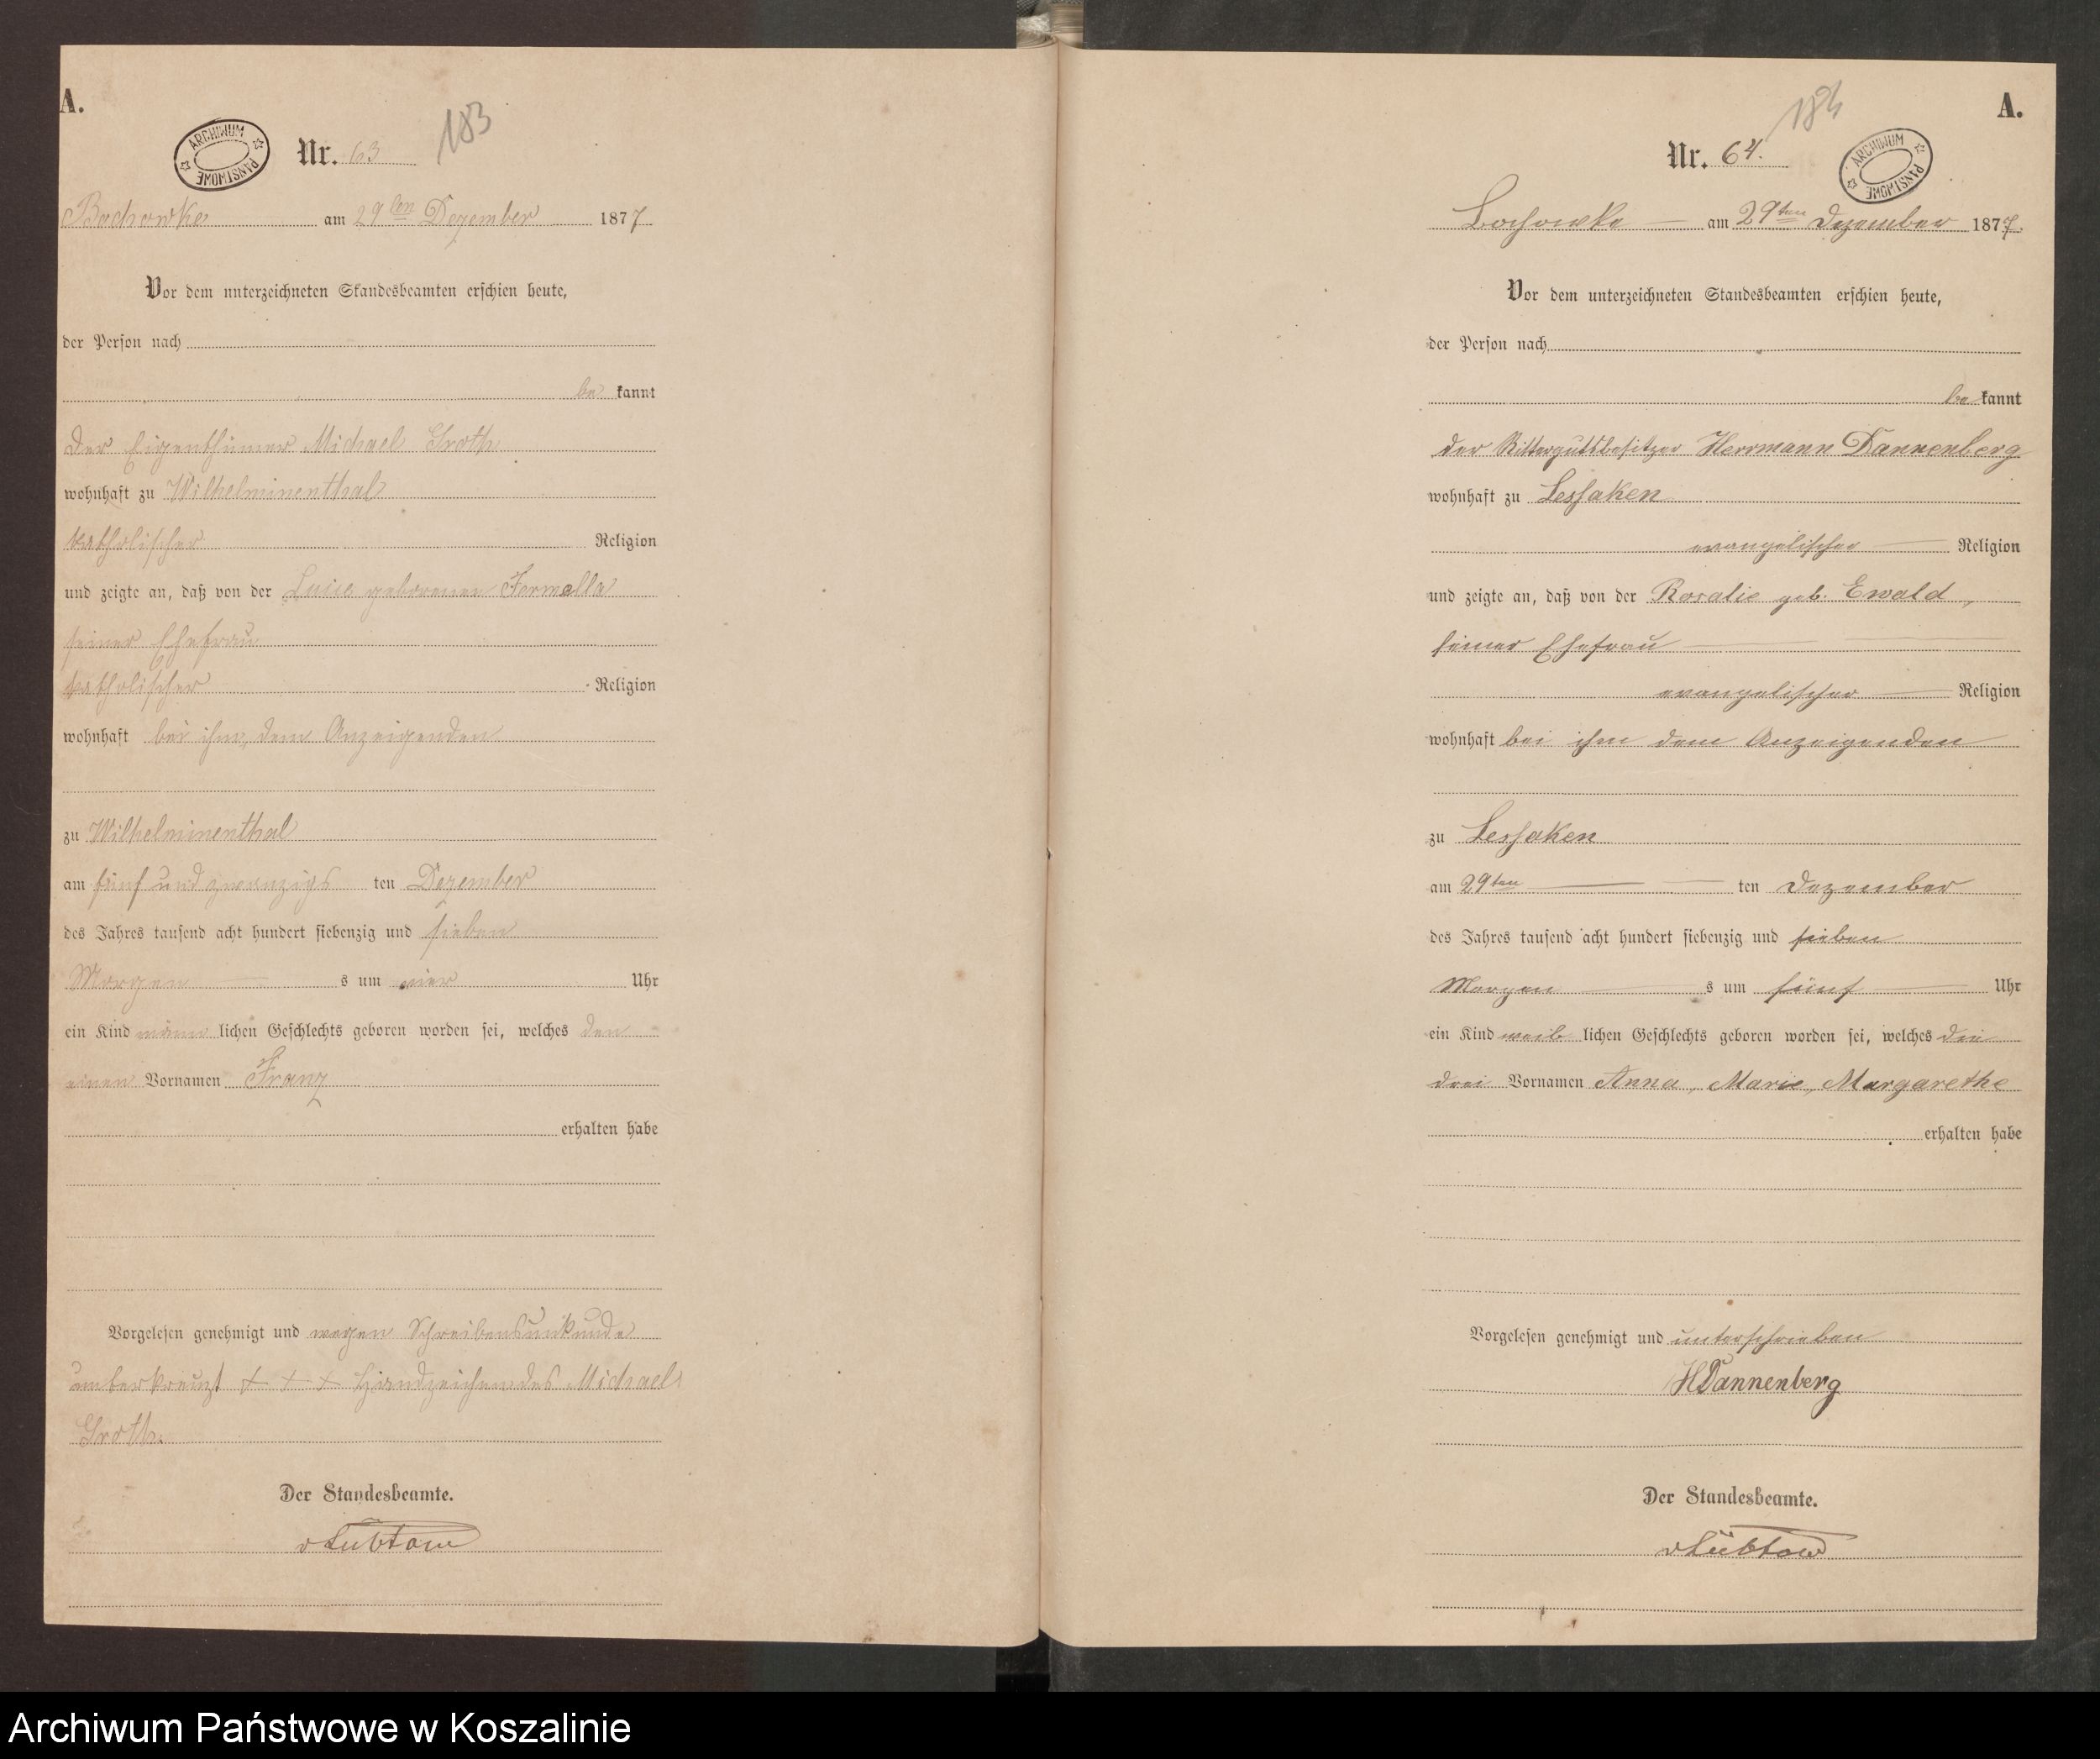 A.
ARCHIWUM PAŃSTWOWE
Nr. 63
183
Bochowke am 29ten Dezember 1877
Vor dem unterzeichneten Standesbeamten erschien heute,
der Person nach
be kannt
der Eigenthümer Michael Groth
wohnhaft zu Wilhelminenthal
katholischer Religion
und zeigte an, daß von der Luise geborenen Formella
seiner Ehefrau
katholischer Religion
wohnhaft bei ihm, dem Anzeigenden
zu Wilhelminenthal
am fünf und zwanzigs ten Dezember
des Jahres tausend acht hundert siebenzig und sieben
Morgen s um vier Uhr
ein Kind männ lichen Geschlechts geboren worden sei, welches den
einen Vornamen Franz
erhalten habe
Vorgelesen genehmigt und wegen Schreibensunkunde
unterkreuzt + + + Handzeichen des Michael
Groth.
Der Standesbeamte.
vLübtow
A.
184
Nr. 64.
ARCHIWUM PAŃSTWOWE
Bochowke am 29ten Dezember 1877.
Vor dem unterzeichneten Standesbeamten erschien heute,
der Person nach
be kannt
der Rittergutsbesitzer Herrmann Dannenberg
wohnhaft zu Lessaken
evangelischer Religion
und zeigte an, daß von der Rosalie geb. Ewald,
seiner Ehefrau
evangelischer Religion
wohnhaft bei ihm dem Anzeigenden
zu Lessaken
am 29ten ten Dezember
des Jahres tausend acht hundert siebenzig und sieben
Morgen s um fünf Uhr
ein Kind weib lichen Geschlechts geboren worden sei, welches die
drei Vornamen Anna, Marie, Margarethe
erhalten habe
Vorgelesen genehmigt und unterschrieben
HDannenberg
Der Standesbeamte.
vLübtow
Archiwum Państwowe w Koszalinie